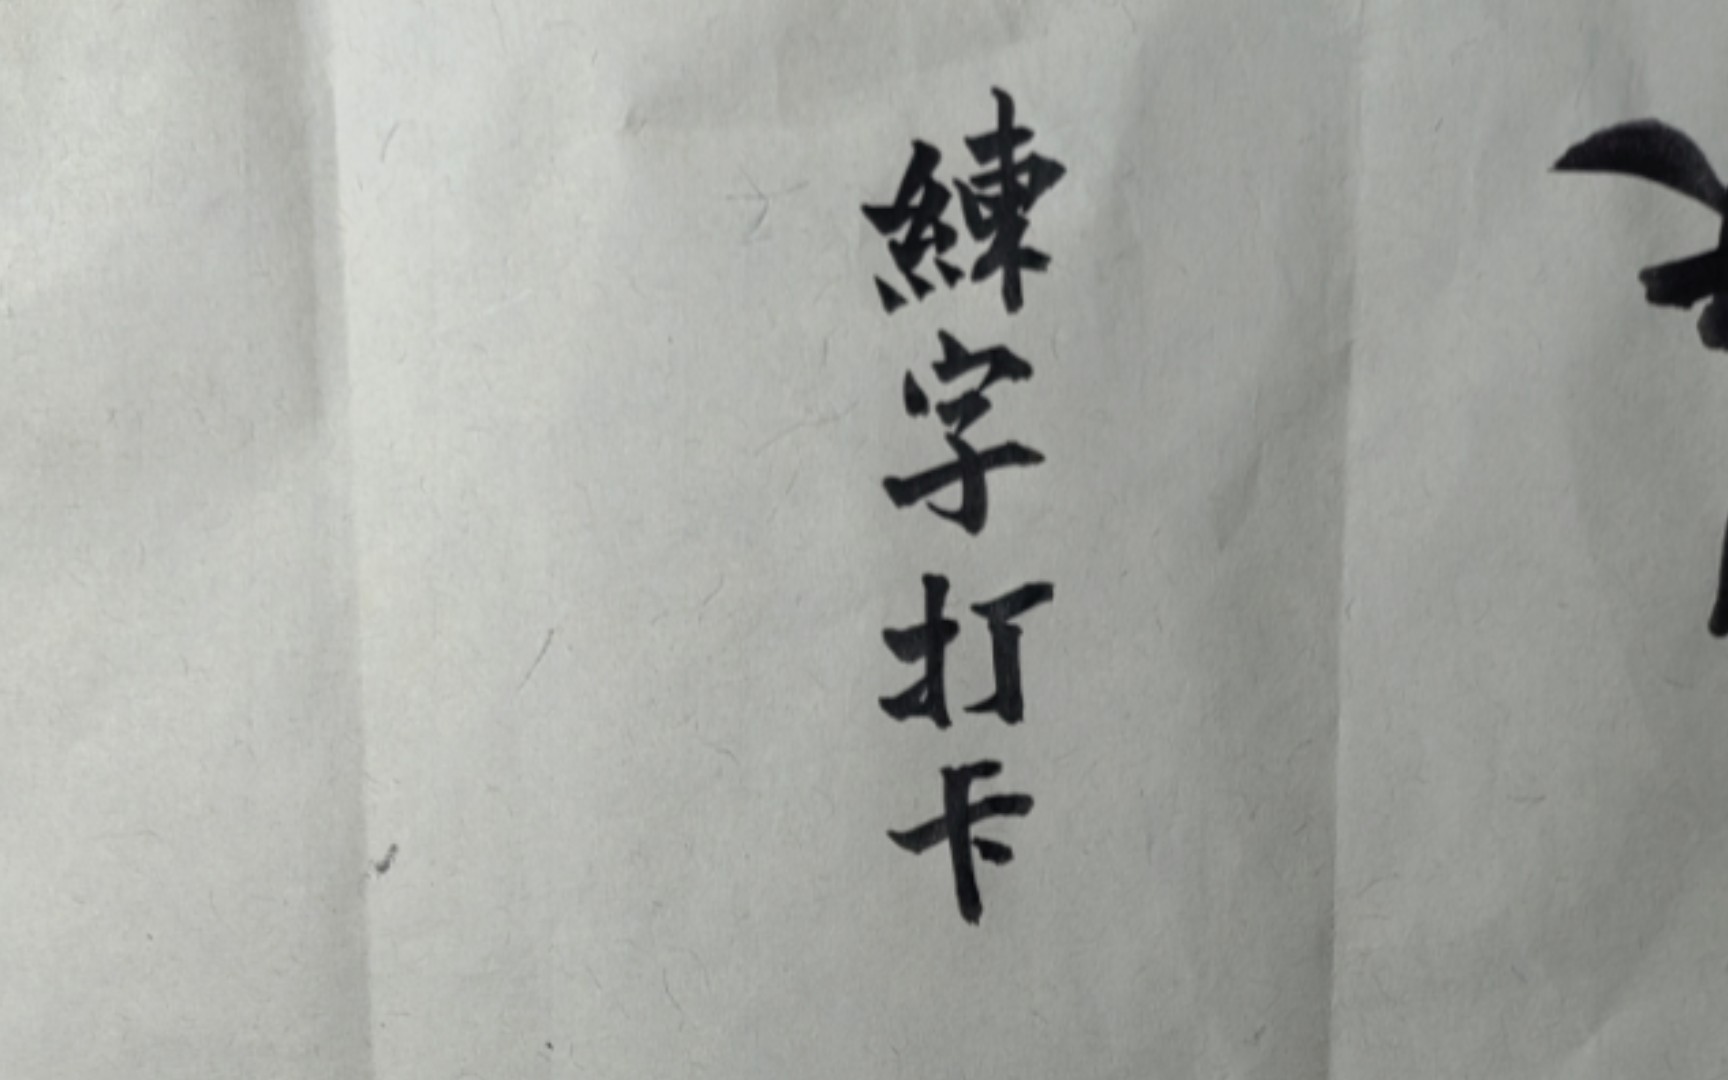 練字打卡